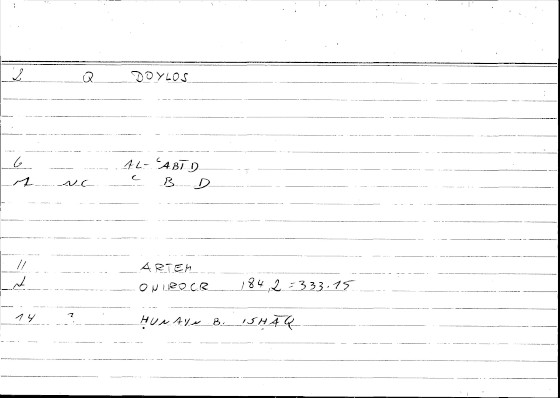 2 Q DOYLOS
6 AL-ʿABĪD
1 NC ʿ B D
11 ARTEM
1 ONIROCR 184,2 = 333.15
14 ? ḤUNAYN B. ISḤĀQ